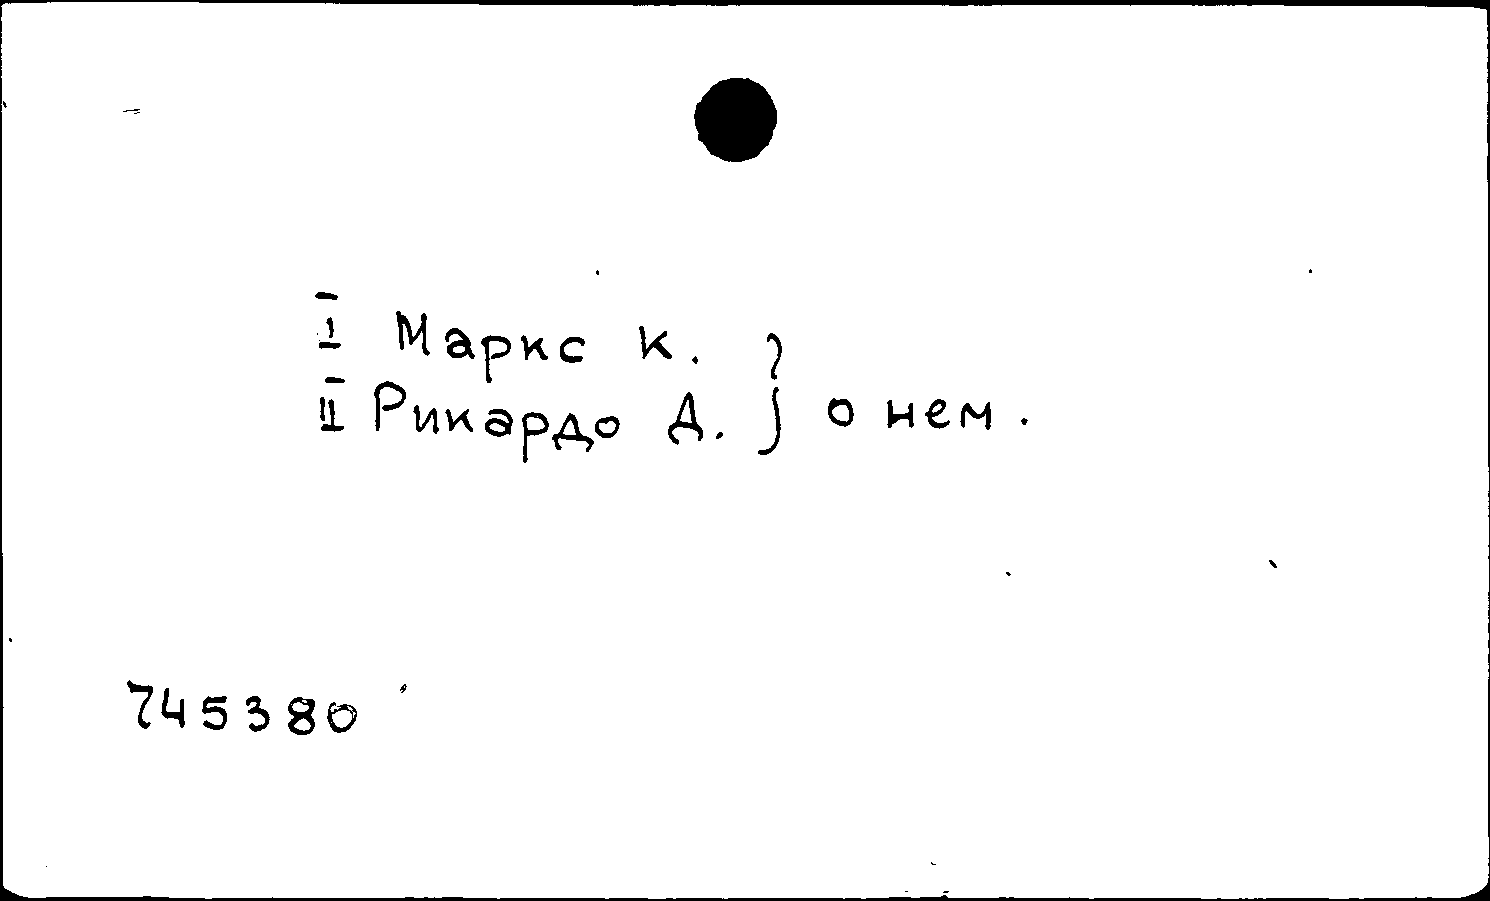 I Маркс К.
II Рикардо Д. } о нем.
745380